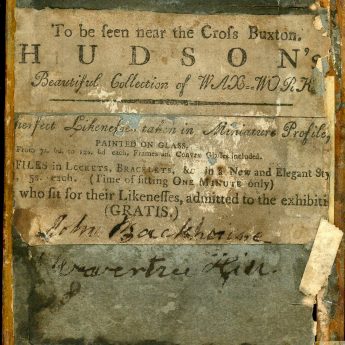 To be seen near the Croſs Buxton.
HUDSON's
Beautiful Collection of WAX-WORK
perfect Likeneſſes taken in Miniature Profile,
PAINTED ON GLASS,
From 7s. 6d. to 12s. 6d each, Frames and Convex Glaſſes included.
FILES in LOCKETS, BRACELETS, &c in a New and Elegant Sty
5s. each. (Time of ſitting ONE MINUTE only)
who ſit for their Likeneſſes, admitted to the exhibiti
(GRATIS.)
John Backhouse
Wavertree Hill.